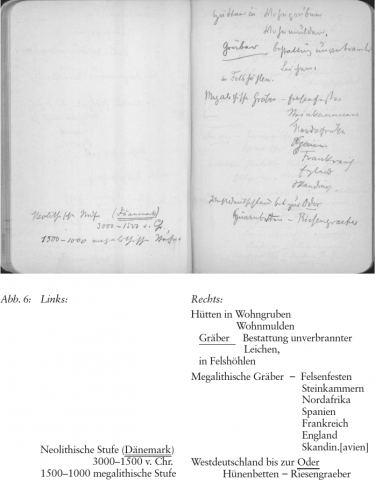 Neolithische Stufe (Dänemark)
3000–1500 v. Ch.
1500–1000 megalithische Stufe.
Hütten in Wohngruben
Wohnmulden,
Gräber Bestattung unverbrannter
Leichen,
in Felshöhlen.
Megalithische Gräber – Felsenfesten
Steinkammern
Nordafrika
Spanien
Frankreich
England
Skandin.
Westdeutschland bis zur Oder
Hünenbetten – Riesengraeber
Abb. 6: Links:
Neolithische Stufe (Dänemark)
3000–1500 v. Chr.
1500–1000 megalithische Stufe
Rechts:
Hütten in Wohngruben
Wohnmulden
Gräber Bestattung unverbrannter
Leichen,
in Felshöhlen
Megalithische Gräber – Felsenfesten
Steinkammern
Nordafrika
Spanien
Frankreich
England
Skandin.[avien]
Westdeutschland bis zur Oder
Hünenbetten – Riesengraeber